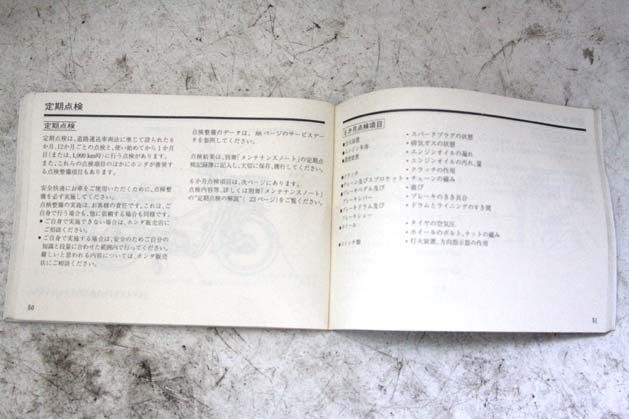 定期点検
定期点検
定期点検は、道路運送車両法に準じて計られた6
か月、12か月ごとの点検と、使い始めてから1か月
目(または、1,000km時)に行う点検があります。
また、これらの点検項目のほかにホンダが推奨す
る点検整備項目もあります。
安全快適にお車をご使用いただくために、点検整
備を必ず実施してください。
点検整備の実施は、お客様の責任です。これは、ご
自身で行う場合も、他に依頼する場合も同様です。
●ご自身で実施できない場合は、ホンダ販売店に
ご相談ください。
●ご自身で実施する場合は、安全のためご自分の
知識と技量に合わせた範囲内で行ってください。
難しいと思われる内容については、ホンダ販売
店にご相談ください。
点検整備のデータは、ページのサービスデー
タを参照してください。
点検結果は、別冊「メンテナンスノート」の定期点
検記録簿に記入し、大切に保存、携行してください。
6か月点検項目は、次ページにあります。
点検内容等、詳しくは別冊「メンテナンスノート」
の「定期点検の解説」(23ページ)をご覧ください。
50
6か月点検項目
・スパークプラグの状態
・排気ガスの状態
・エンジンオイルの漏れ
・エンジンオイルの汚れ、量
・クラッチの作用
・チェーンの緩み
・遊び
・ブレーキのきき具合
・ドラムとライニングのすき間
・タイヤの空気圧
・ホイールのボルト、ナットの緩み
・灯火装置、方向指示器の作用
51